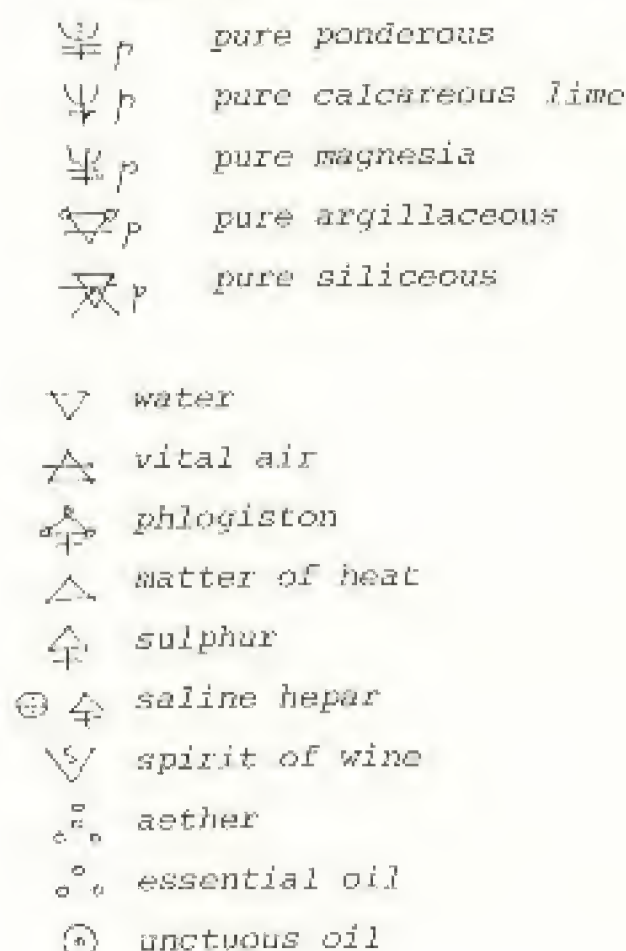 p pure ponderous
p pure calcareous lime
p pure magnesia
p pure argillaceous
p pure siliceous
water
vital air
phlogiston
matter of heat
sulphur
saline hepar
spirit of wine
aether
essential oil
unctuous oil